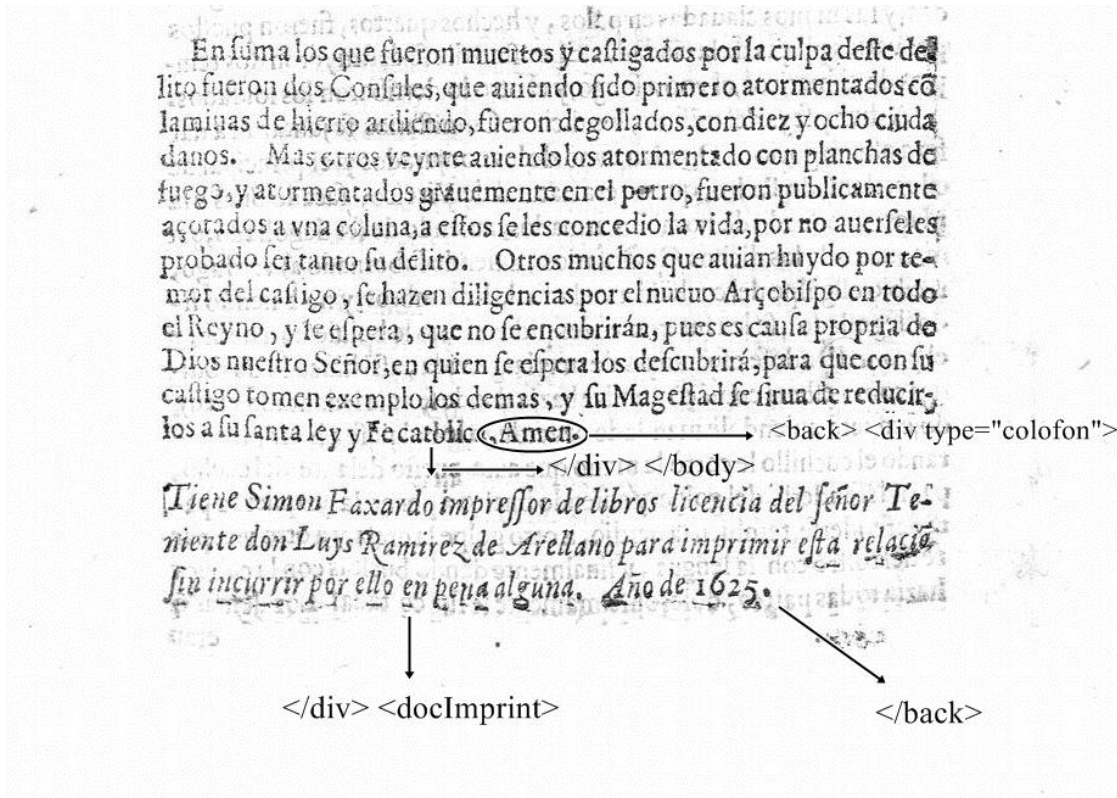 En ſuma los que fueron muertos y caſtigados por la culpa deſte de-
lito fueron dos Conſules, que auiendo ſido primero atormentados cõ
laminas de hierro ardiendo, fueron degollados, con diez y ocho ciuda
danos. Mas otros veynte auiendolos atormentado con planchas de
fuego, y atormentados grauemente en el potro, fueron publicamente
açotados a vna coluna, a eſtos ſe les concedio la vida, por no auerſeles
probado ſer tanto ſu delito. Otros muchos que auian huydo por te-
mor del caſtigo, ſe hazen diligencias por el nueuo Arçobiſpo en todo
el Reyno, y ſe eſpera, que no ſe encubrirán, pues es cauſa propria de
Dios nueſtro Señor, en quien ſe eſpera los deſcubrirá, para que con ſu
caſtigo tomen exemplo los demas, y ſu Mageſtad ſe ſirua de reducir-
los a ſu ſanta ley y Fe catolica, Amen. <back> <div type="colofon">
</div> </body>
Tiene Simon Faxardo impreſſor de libros licencia del ſeñor Te-
niente don Luys Ramirez de Arellano para imprimir eſta relaciõ
ſin incurrir por ello en pena alguna. Año de 1625.
</div> <docImprint>
</back>